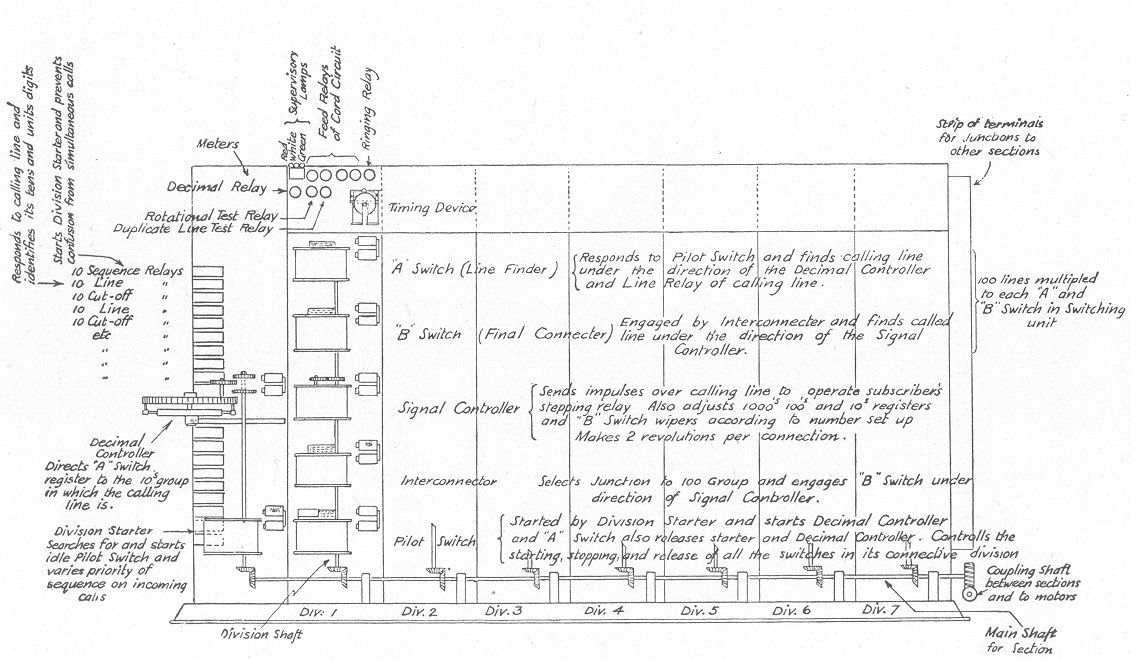 Responds to calling line and
identifies its tens and units digits
Starts Division Starter and prevents
confusion from simultaneous calls
Red
White
Green
Supervisory
Lamps
Feed Relays
of Cord Circuit
Ringing Relay
Meters
Decimal Relay
Rotational Test Relay
Duplicate Line Test Relay
Timing Device
Strip of terminals
for Junctions to
other sections
10 Sequence Relays
10 Line "
10 Cut-off "
10 Line "
10 Cut-off "
etc "
"
"
"A" Switch (Line Finder)
Responds to Pilot Switch and finds calling line
under the direction of the Decimal Controller
and Line Relay of calling line.
100 lines multipled
to each "A" and
"B" Switch in Switching
unit
"B" Switch (Final Connecter)
Engaged by Interconnecter and finds called
line under the direction of the Signal
Controller.
Signal Controller
Sends impulses over calling line to operate subscriber's
stepping relay. Also adjusts 1000's 100's and 10's registers
and "B" Switch wipers according to number set up
Makes 2 revolutions per connection.
Decimal
Controller
Directs "A" Switch
register to the 10's group
in which the calling
line is.
Interconnector
Selects Junction to 100 Group and engages "B" Switch under
direction of Signal Controller.
Division Starter
Searches for and starts
idle Pilot Switch and
varies priority of
sequence on incoming
calls
Pilot Switch
Started by Division Starter and starts Decimal Controller
and "A" Switch also releases starter and Decimal Controller. Controls the
starting, stopping, and release of all the switches in its connective division
Coupling Shaft
between sections
and to motors
Div. 1 Div. 2 Div. 3 Div. 4 Div. 5 Div. 6 Div. 7
Division Shaft
Main Shaft
for Section